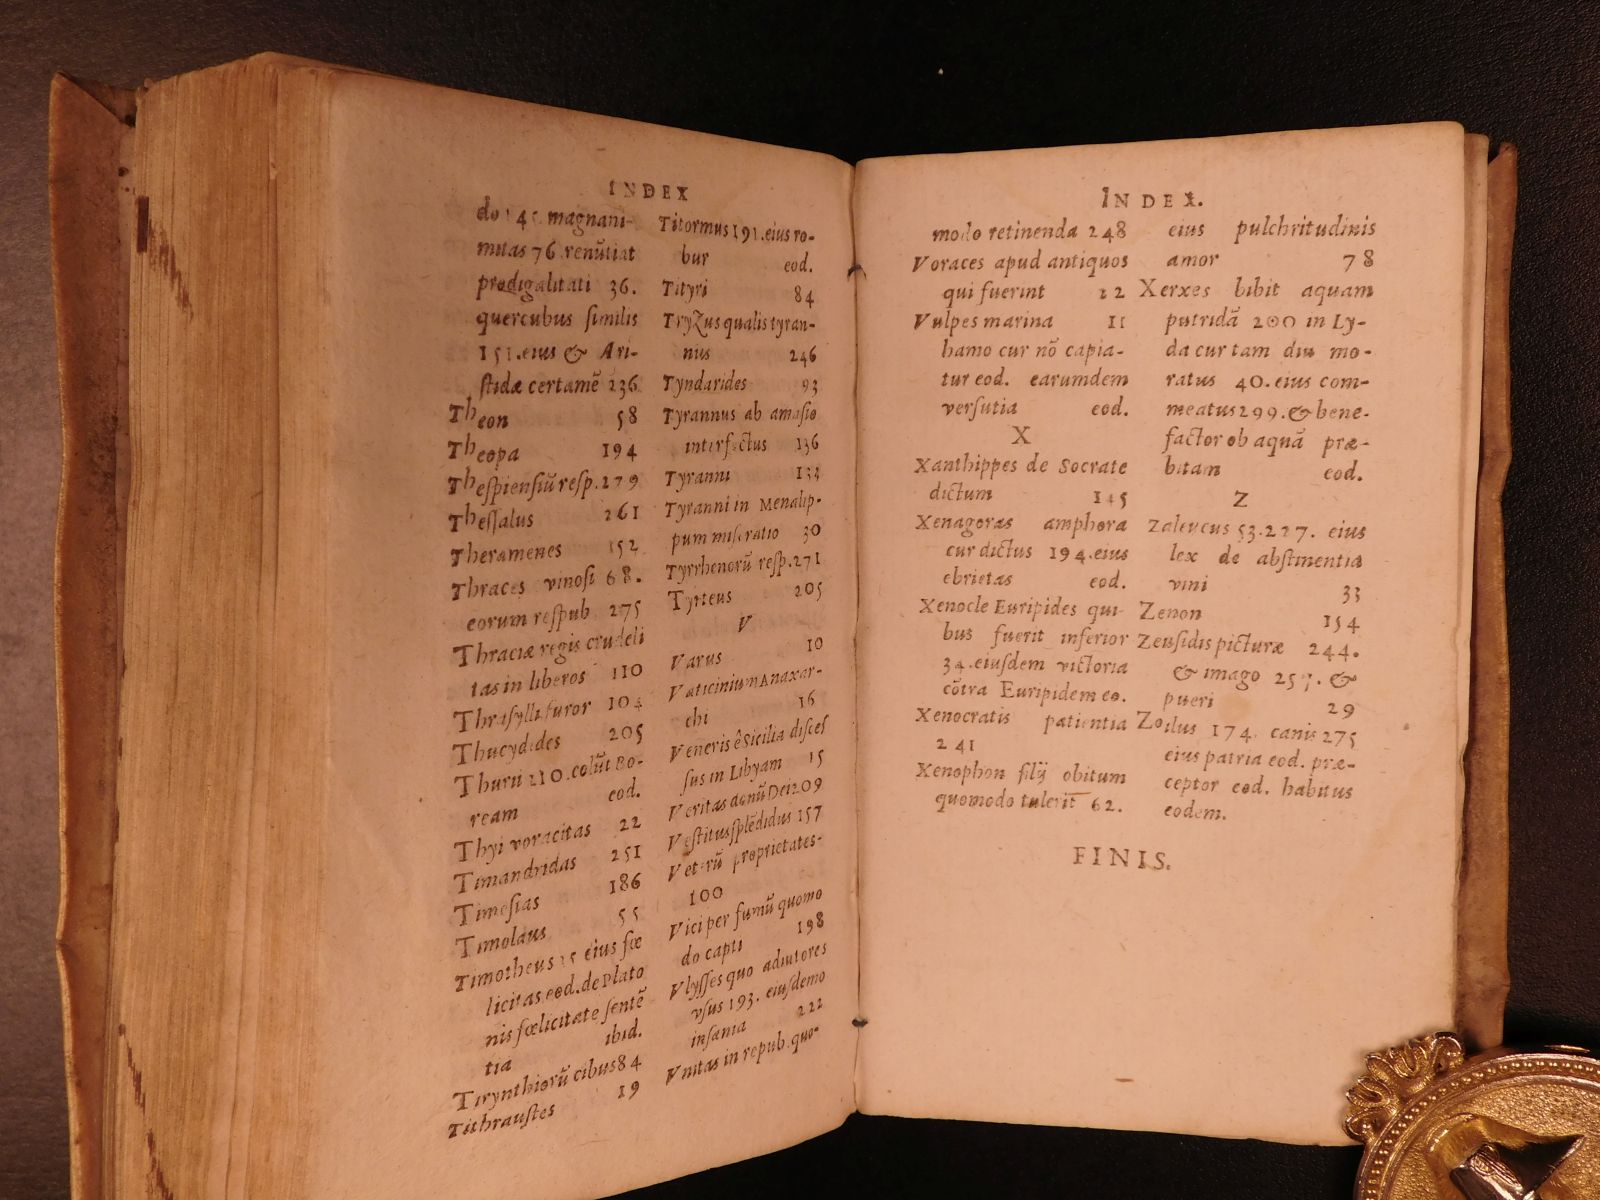 INDEX
magnani-
76 renũtiat
prodigalitati 36.
quercubus similis
151. eius & Ari-
stidæ certamẽ 236
Theon 58
Theopa 194
Thespiensiũ resp. 279
Thessalus 261
Theramenes 152
Thraces vinosi 68.
eorum respub 275
Thraciæ regis crudeli
tas in liberos 110
Thrasylli furor 104
Thucydides 205
Thurii 210. colũt Bo-
ream eod.
Thyi voracitas 22
Timandridas 251
Timesias 186
Timolaus 55
Timotheus eius fœ
licitas eod. de Plato
nis fœlicitate sentẽ
tia ibid.
Tirynthiorũ cibus 84
Tithraustes 19
Titormus 191. eius ro-
bur eod.
Tityri 84
Tryzus qualis tyran-
nus 246
Tyndarides 93
Tyrannus ab amasio
interfectus 136
Tyranni 134
Tyranni in Menalip-
pum miseratio 30
Tyrrhenorũ resp. 271
Tyrteus 205
V
Varus 10
Vaticinium Anaxar-
chi 16
Veneris ê Sicilia disces
sus in Libyam 15
Veritas donũ Dei 209
Vestitus splẽdidus 157
Veterũ proprietates-
100
Vici per fumũ quomo
do capti 198
Vlysses quo adiutores
vsus 193. eiusdem
insania 222
Vnitas in repub. quo-
INDEX.
modo retinenda 248
Voraces apud antiquos
qui fuerint 12
Vulpes marina 11
hamo cur nõ capia-
tur eod. earumdem
versutia eod.
X
Xanthippes de Socrate
dictum 145
Xenagoras amphora
cur dictus 194. eius
ebrietas eod.
Xenocle Euripides qui-
bus fuerit inferior
34. eiusdem victoria
cõtra Euripidem eo.
Xenocratis patientia
241
Xenophon filij obitum
quomodo tulerit 62.
eius pulchritudinis
amor 78
Xerxes bibit aquam
putridã 200 in Ly-
da cur tam diu mo-
ratus 40. eius com-
meatus 299. & bene-
factor ob aquã præ-
bitam eod.
Z
Zaleucus 53. 227. eius
lex de abstinentia
vini 33
Zenon 154
Zeusidis picturæ 244.
& imago 257. &
pueri 29
Zoilus 174. canis 275
eius patria eod. præ-
ceptor eod. habitus
eodem.
FINIS.